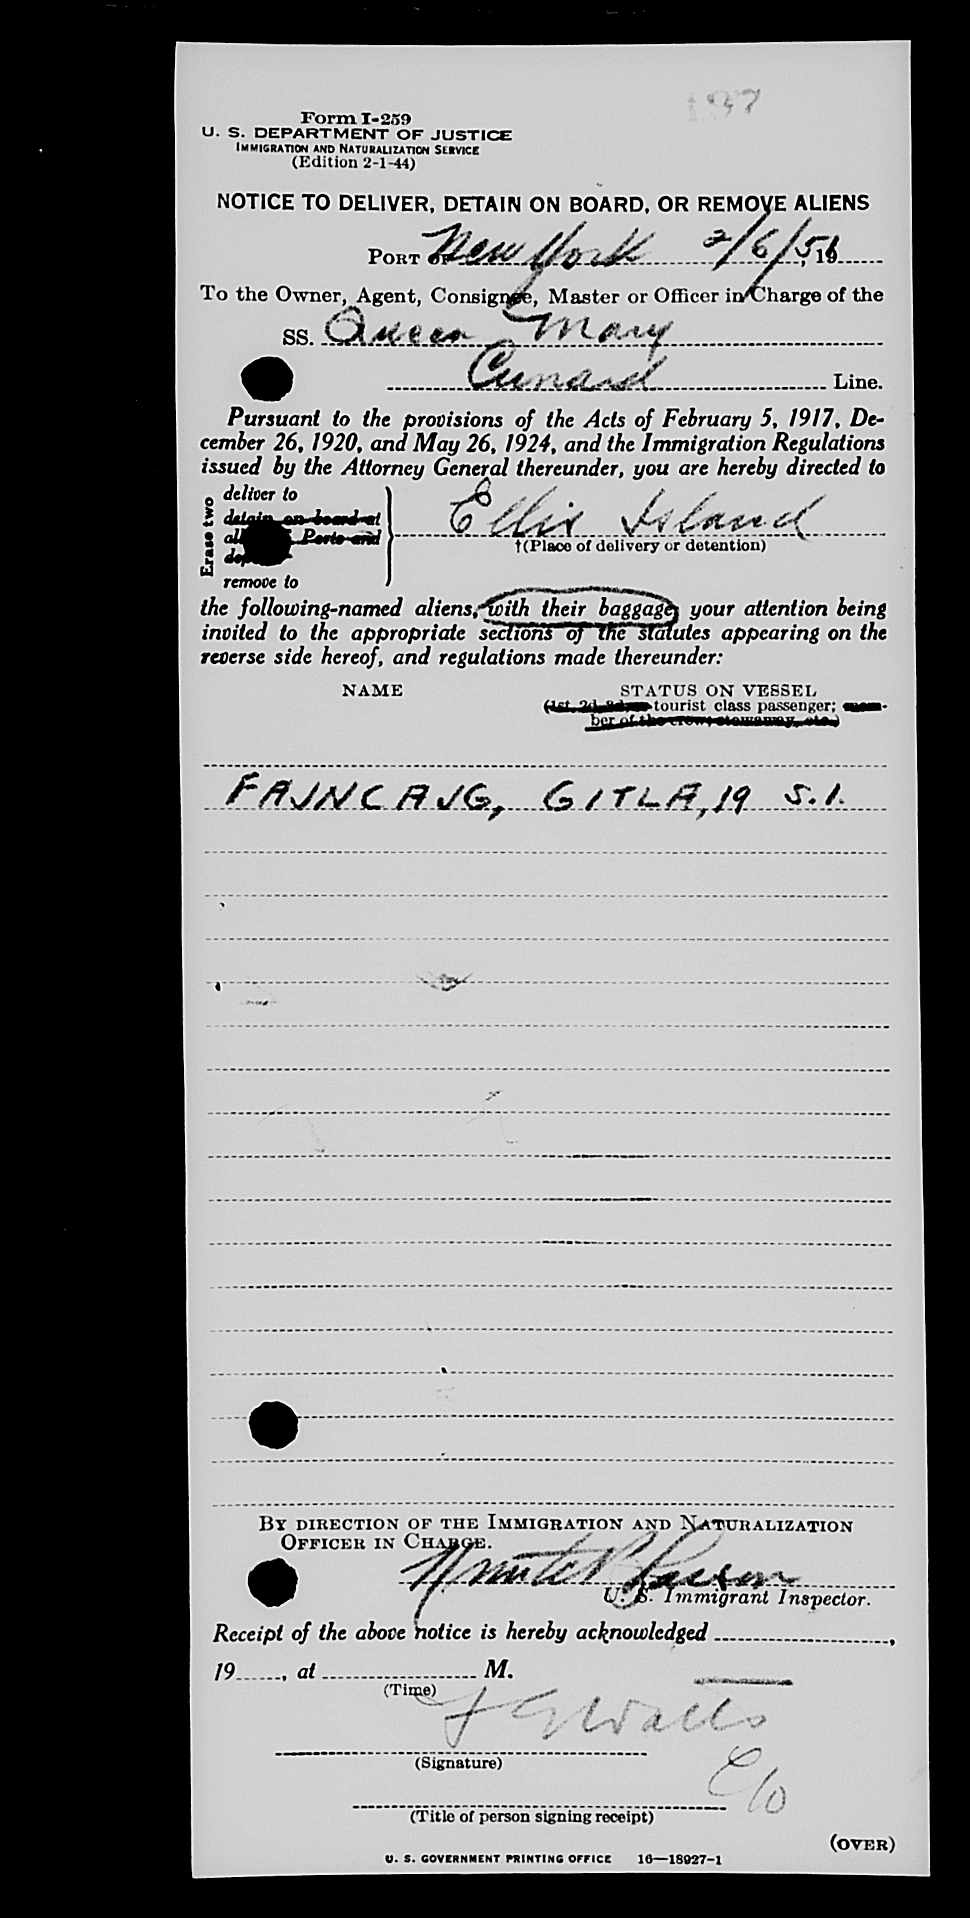 137
Form I-259
U. S. DEPARTMENT OF JUSTICE
IMMIGRATION AND NATURALIZATION SERVICE
(Edition 2-1-44)
NOTICE TO DELIVER, DETAIN ON BOARD, OR REMOVE ALIENS
PORT OF New York 2/6/51, 19
To the Owner, Agent, Consignee, Master or Officer in Charge of the
SS. Queen Mary
Cunard Line.
Pursuant to the provisions of the Acts of February 5, 1917, De-
cember 26, 1920, and May 26, 1924, and the Immigration Regulations
issued by the Attorney General thereunder, you are hereby directed to
Erase two
deliver to
detain on board at
all Ports and
remove to
Ellis Island
†(Place of delivery or detention)
the following-named aliens, with their baggage, your attention being
invited to the appropriate sections of the statutes appearing on the
reverse side hereof, and regulations made thereunder:
NAME STATUS ON VESSEL
(1st, 2d, 3d, or tourist class passenger; mem-
ber of the crew; stowaway, etc.)
FAJNCAJG, GITLA, 19 S.I.
BY DIRECTION OF THE IMMIGRATION AND NATURALIZATION
OFFICER IN CHARGE.
U. S. Immigrant Inspector.
Receipt of the above notice is hereby acknowledged ,
19 , at M.
(Time)
Watts
(Signature)
C/O
(Title of person signing receipt)
(OVER)
U. S. GOVERNMENT PRINTING OFFICE 16—18927-1